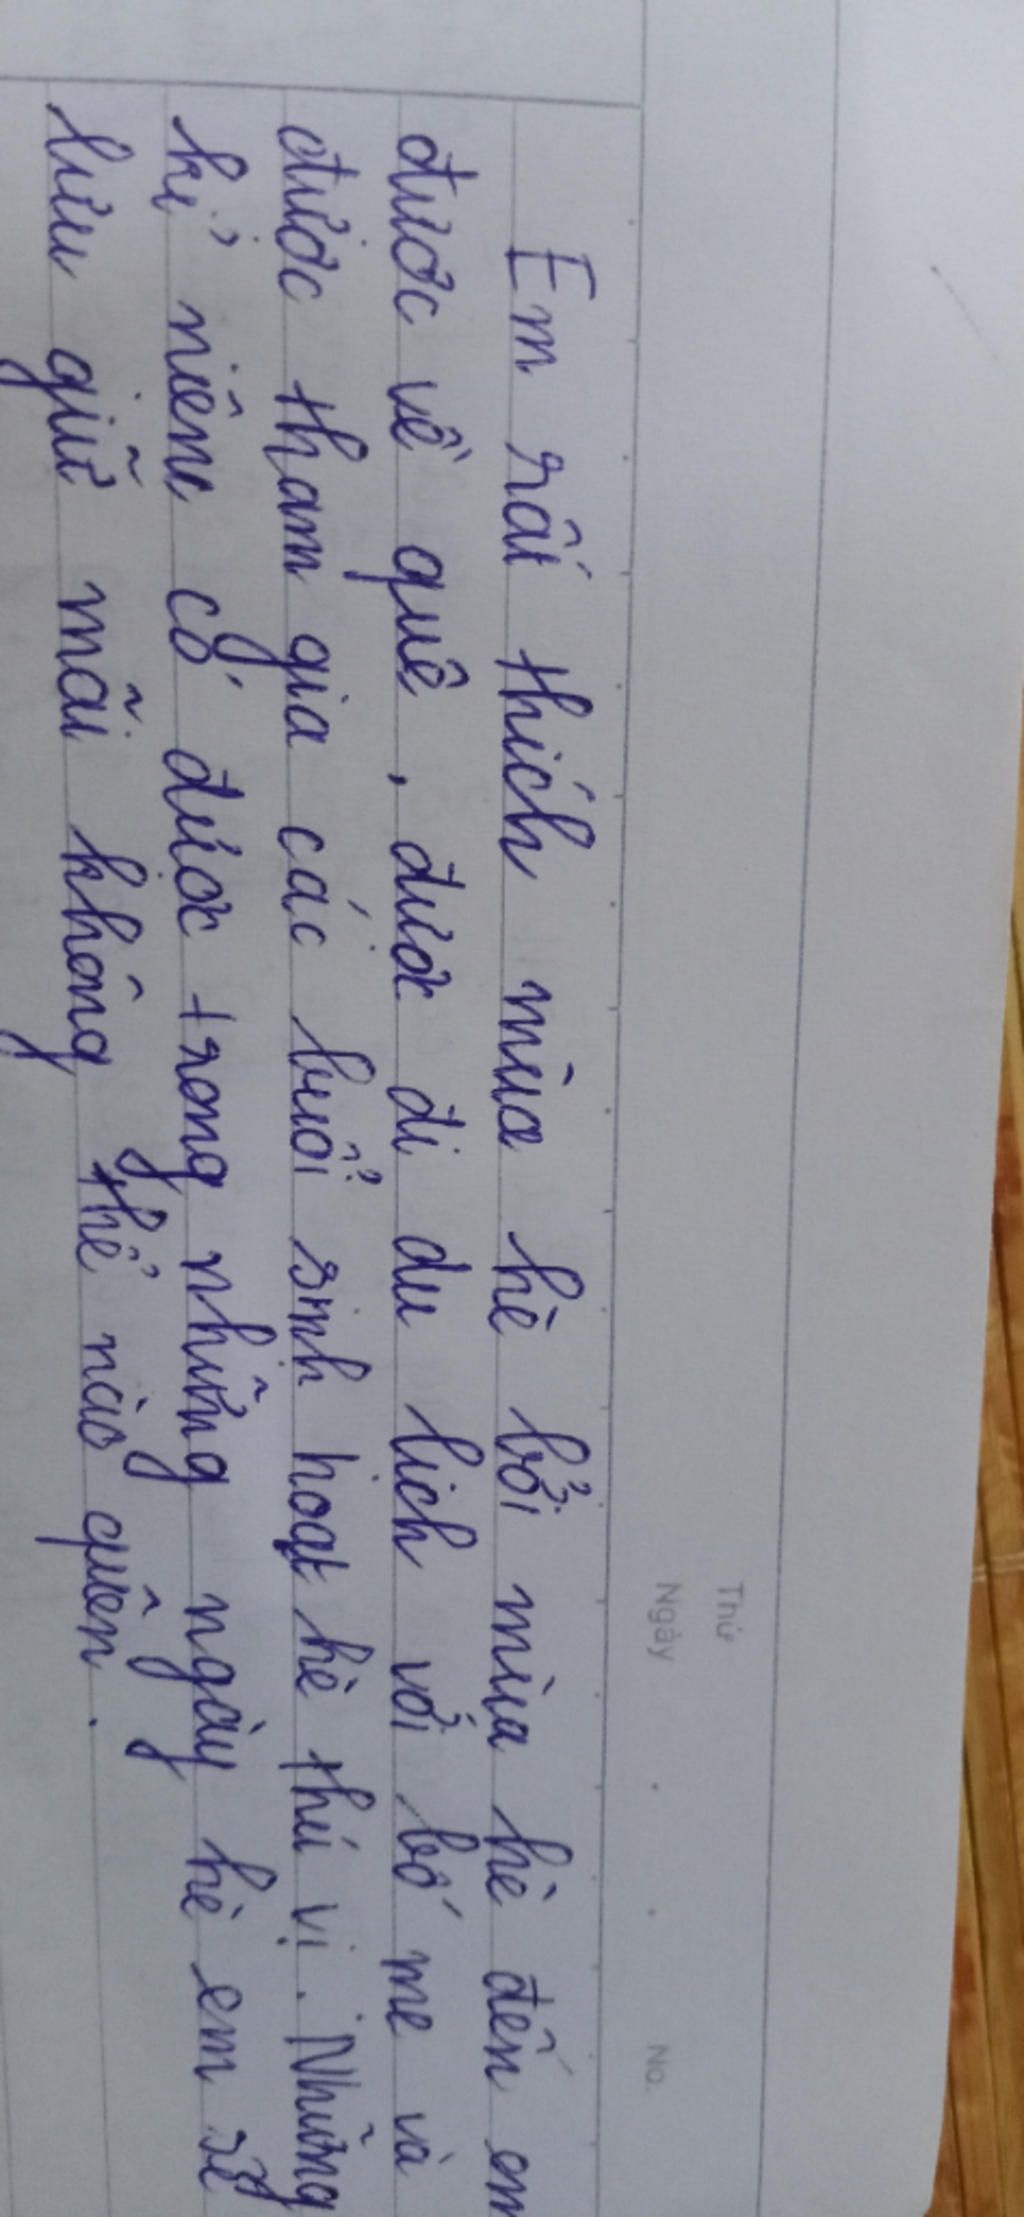 Thứ
Ngày . . No.
Em rất thích mùa hè bởi mùa hè đến em
được về quê, được đi du lịch với bố mẹ và
được tham gia các buổi sinh hoạt hè thú vị. Những
kỉ niệm có được trong những ngày hè em sẽ
lưu giữ mãi không thể nào quên.